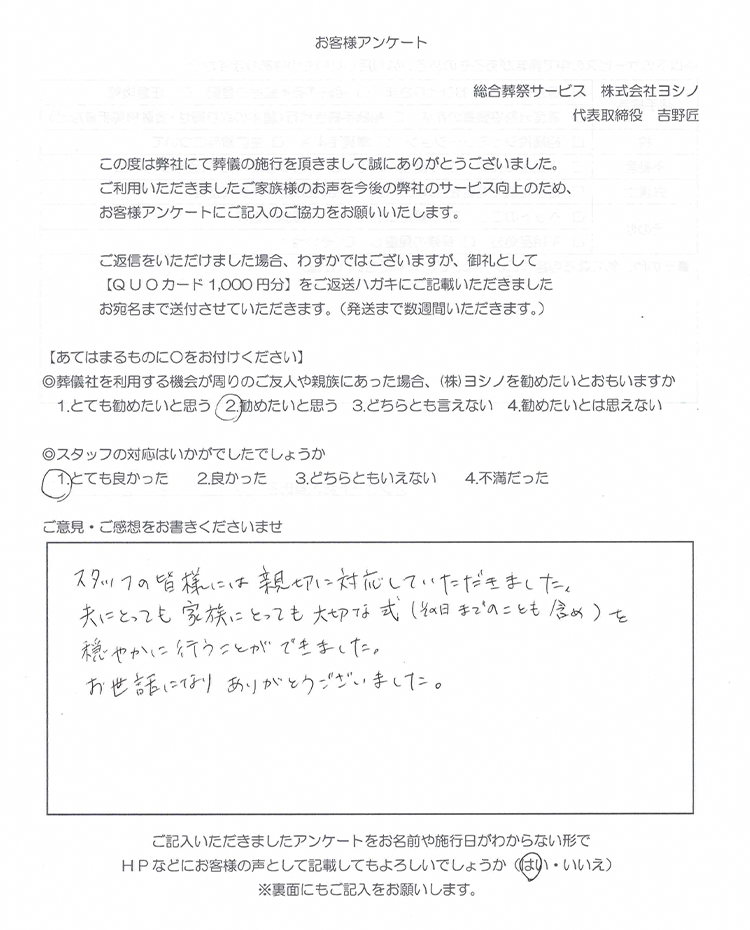 お客様アンケート
総合葬祭サービス　株式会社ヨシノ
代表取締役　吉野匠
この度は弊社にて葬儀の施行を頂きまして誠にありがとうございました。
ご利用いただきましたご家族様のお声を今後の弊社のサービス向上のため、
お客様アンケートにご記入のご協力をお願いいたします。
ご返信をいただけました場合、わずかではございますが、御礼として
【ＱＵＯカード 1,000 円分】をご返送ハガキにご記載いただきました
お宛名まで送付させていただきます。（発送まで数週間いただきます。）
【あてはまるものに〇をお付けください】
◎葬儀社を利用する機会が周りのご友人や親族にあった場合、(株)ヨシノを勧めたいとおもいますか
1.とても勧めたいと思う　2.勧めたいと思う　3.どちらとも言えない　4.勧めたいとは思えない
◎スタッフの対応はいかがでしたでしょうか
1.とても良かった　2.良かった　3.どちらともいえない　4.不満だった
ご意見・ご感想をお書きくださいませ
スタッフの皆様には親切に対応していただきました。
夫にとっても家族にとっても大切な式（その日までのことも含め）を
穏やかに行うことができました。
お世話になりありがとうございました。
ご記入いただきましたアンケートをお名前や施行日がわからない形で
ＨＰなどにお客様の声として記載してもよろしいでしょうか（はい・いいえ）
※裏面にもご記入をお願いします。